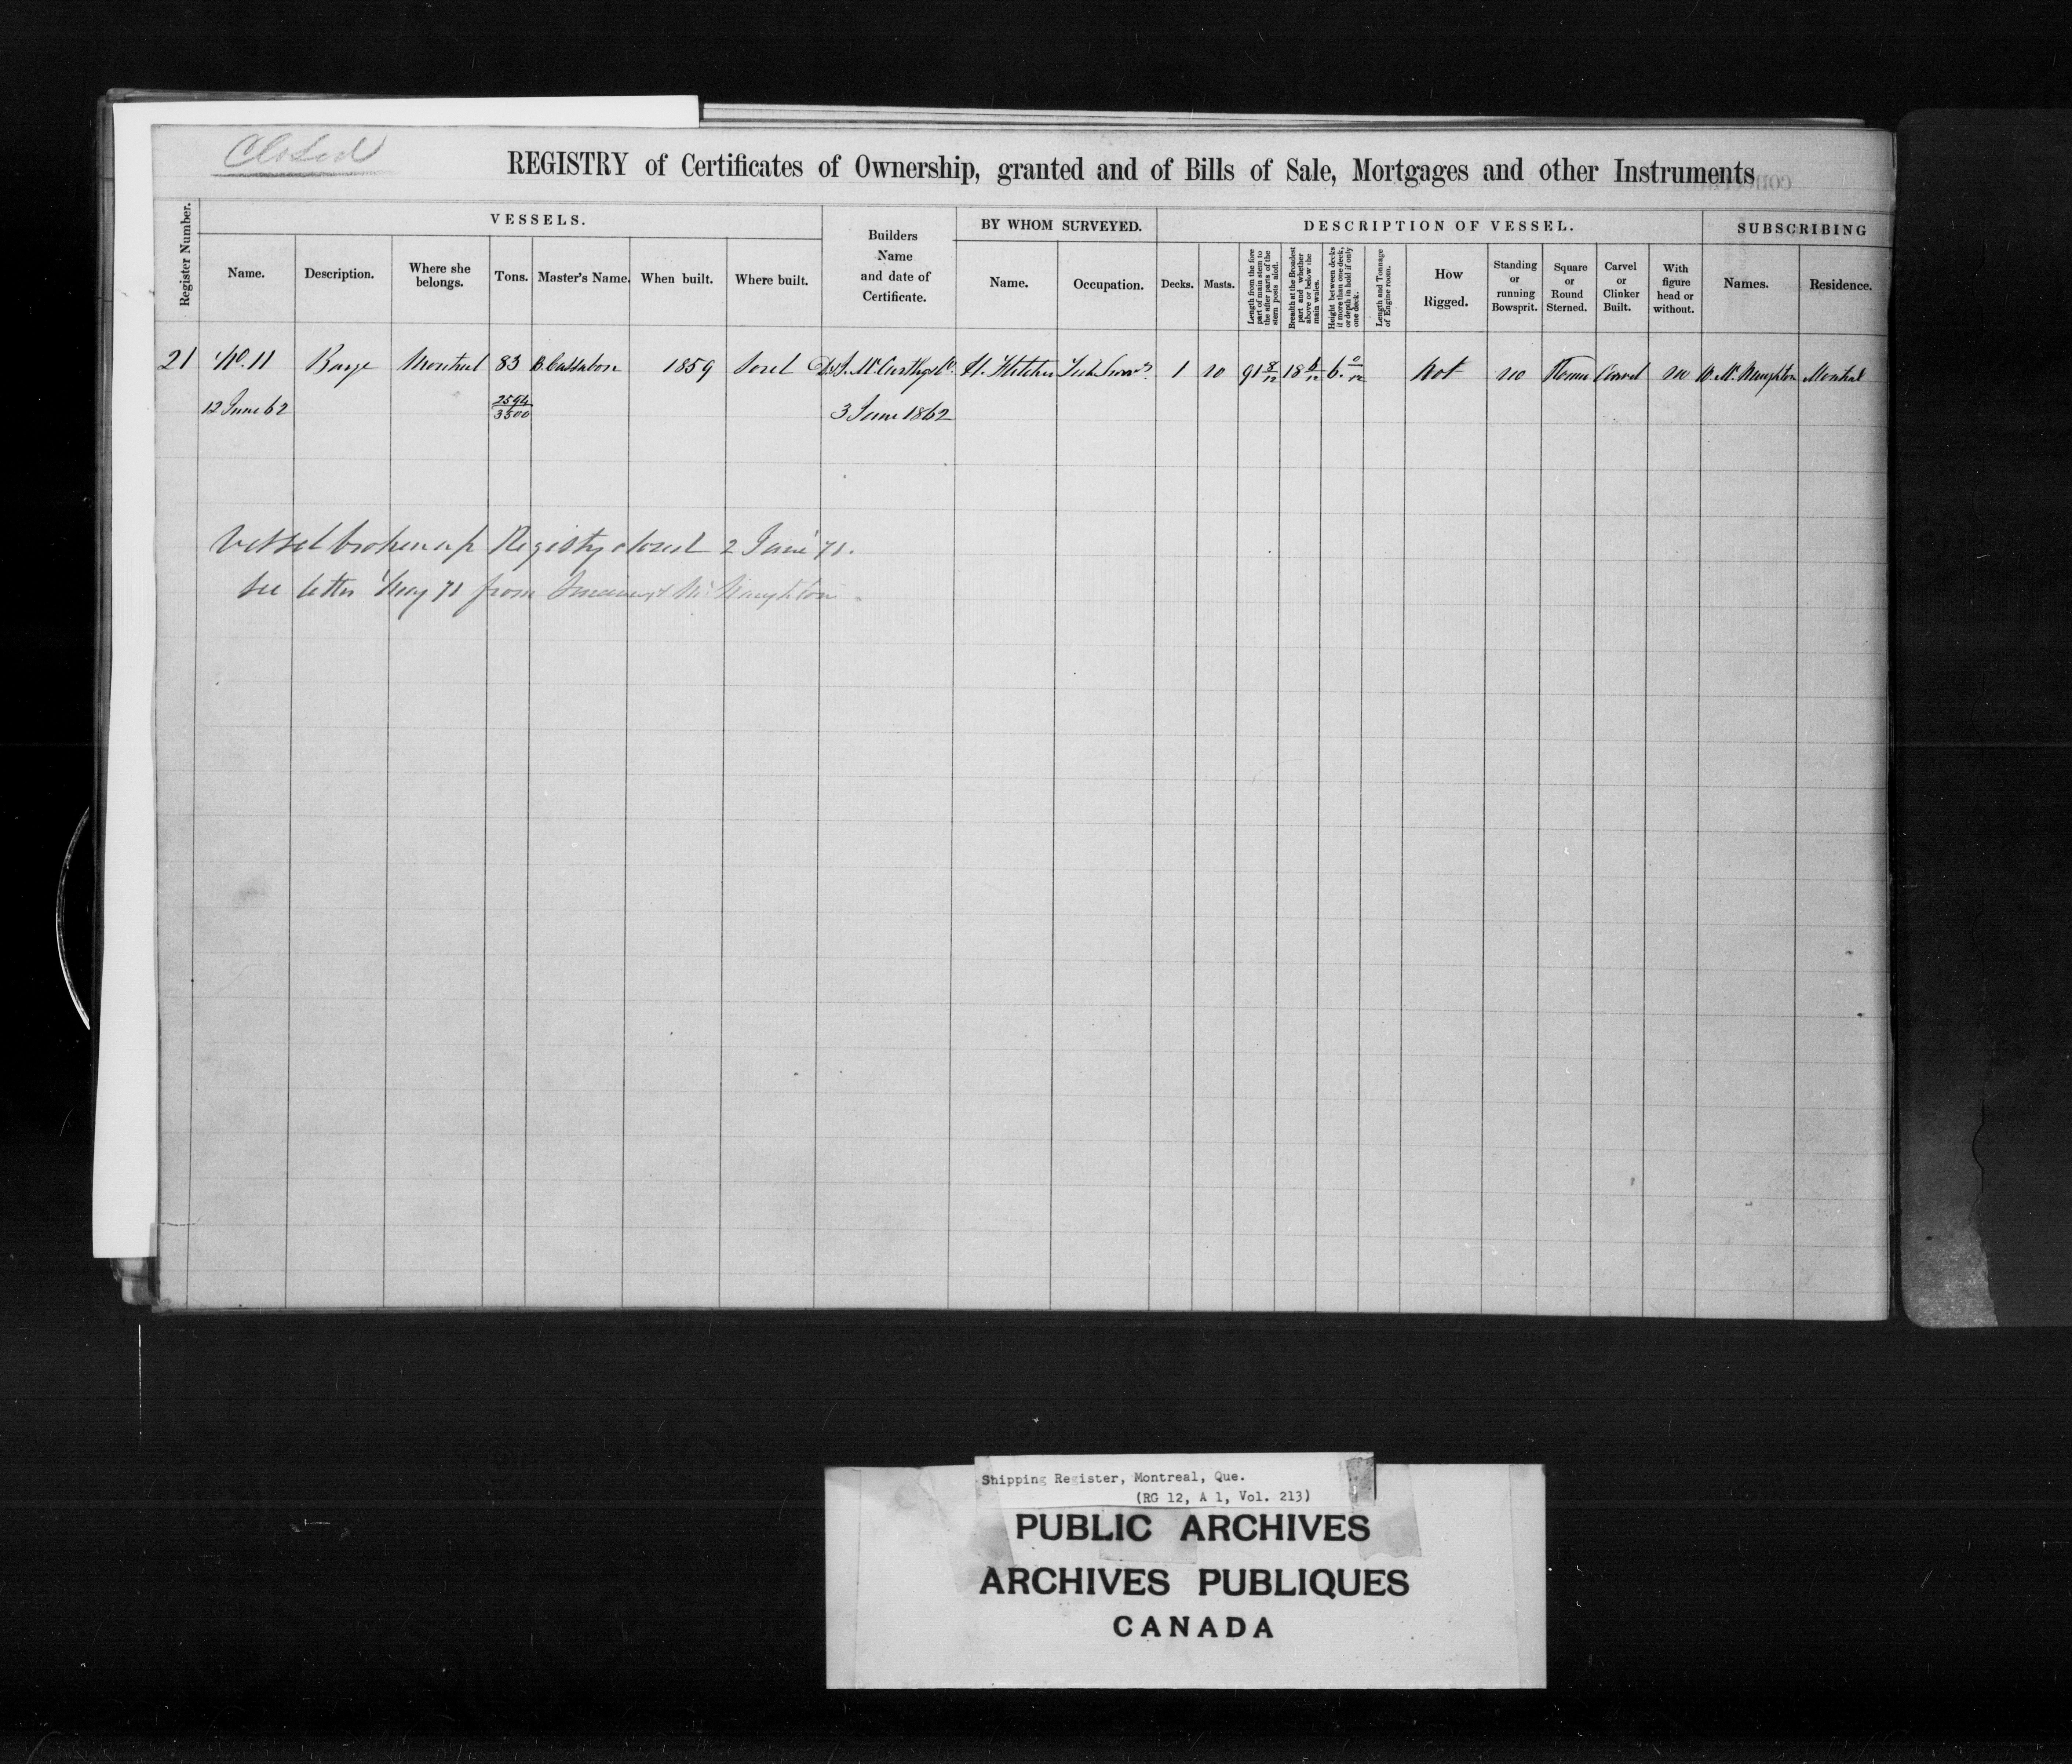 Closed
REGISTRY of Certificates of Ownership, granted and of Bills of Sale, Mortgages and other Instruments
Register Number.
VESSELS.
Name.
Description.
Where she
belongs.
Tons.
Master's Name.
When built.
Where built.
Builders
Name
and date of
Certificate.
BY WHOM SURVEYED.
Name.
Occupation.
DESCRIPTION OF VESSEL.
Decks.
Masts.
Length from the fore
part of main stem to
the after parts of the
stern posts aloft.
Breadth at the Broadest
part and whether
above or below the
main wales.
Height between decks
if more than one deck,
or depth in hold if only
one deck.
Length and Tonnage
of Engine room.
How
Rigged.
Standing
or
running
Bowsprit.
Square
or
Round
Sterned.
Carvel
or
Clinker
Built.
With
figure
head or
without.
SUBSCRIBING
Names.
Residence.
21 No. 11 Barge Montreal 83 B. 1859 Sorel D & J. McCarthy & Co. H. 1 no 91 8/12 18 6/12 6. 0/12 Not no Carvel no McNaughton Montreal
12 June 62 2594/3500 3 June 1862
Vessel broken up Registry closed 2 June 71.
See letter May 71 from & McNaughton
Shipping Register, Montreal, Que.
(RG 12, A 1, Vol. 213)
PUBLIC ARCHIVES
ARCHIVES PUBLIQUES
CANADA